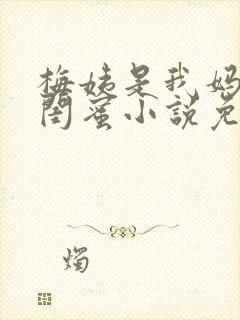 梅姨是我妈
闺蜜小说免
烛